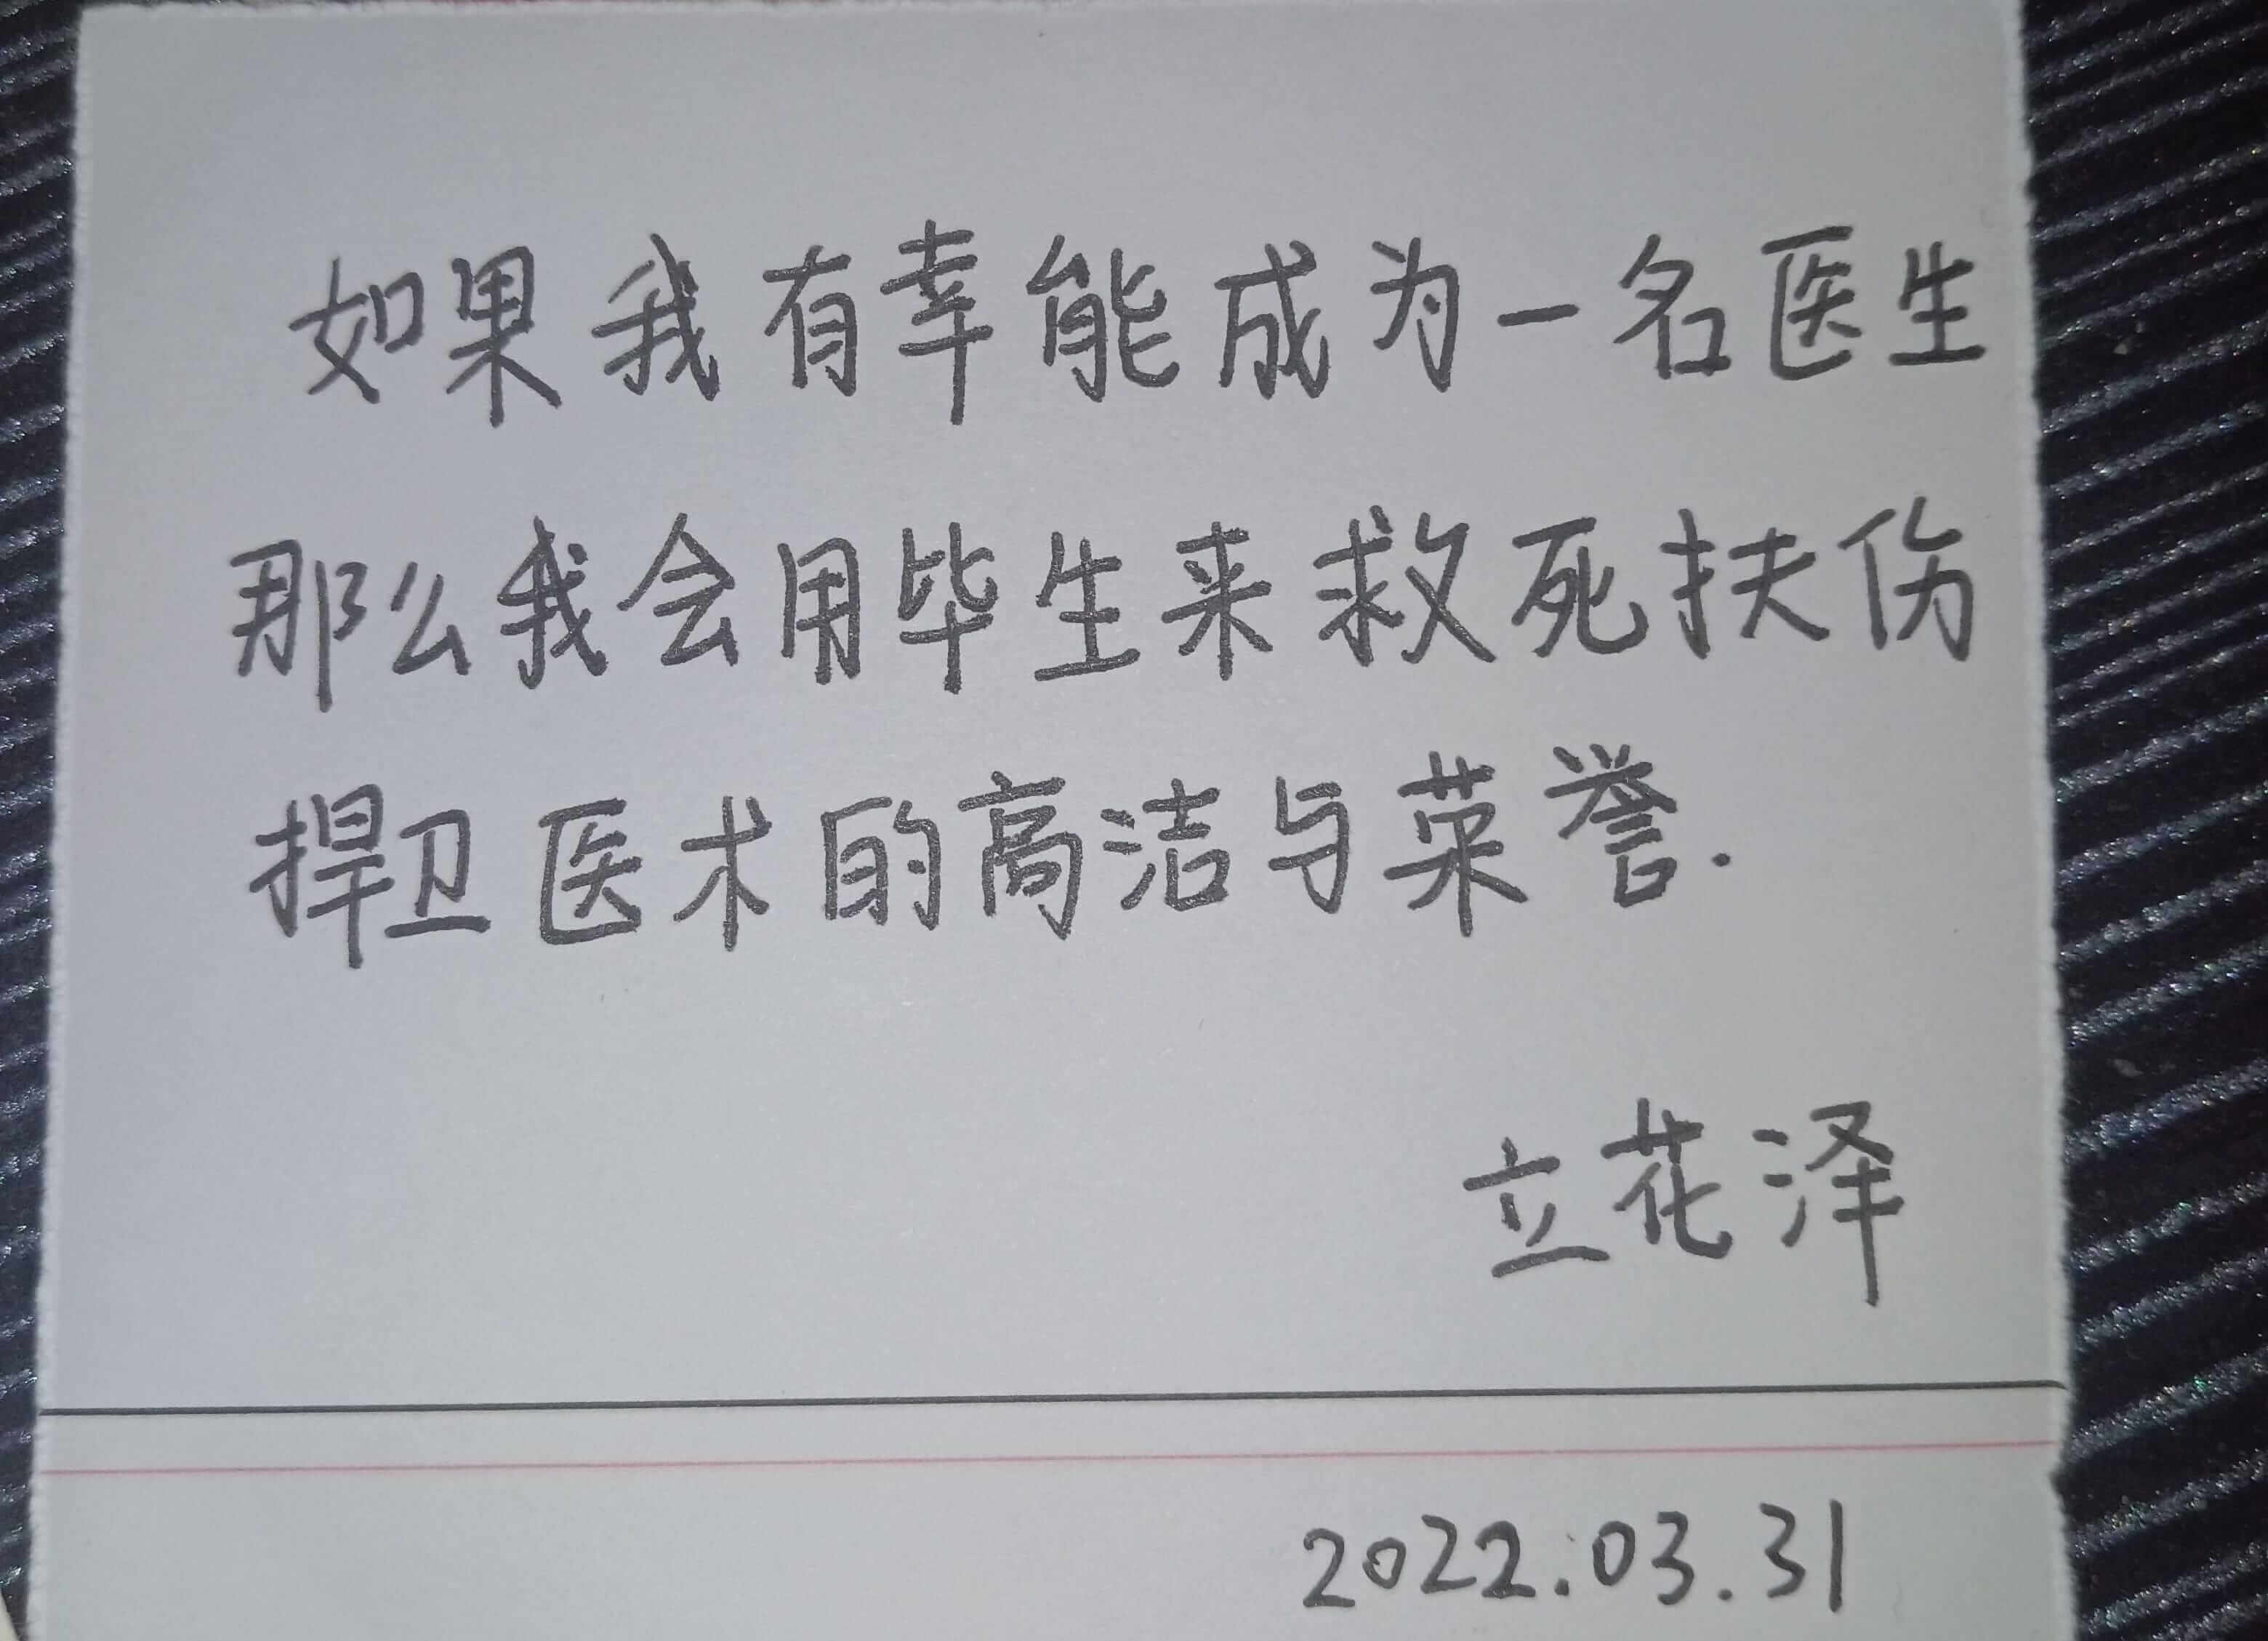 如果我有幸能成为一名医生
那么我会用毕生来救死扶伤
捍卫医术的高洁与荣誉.
立花泽
2022.03.31